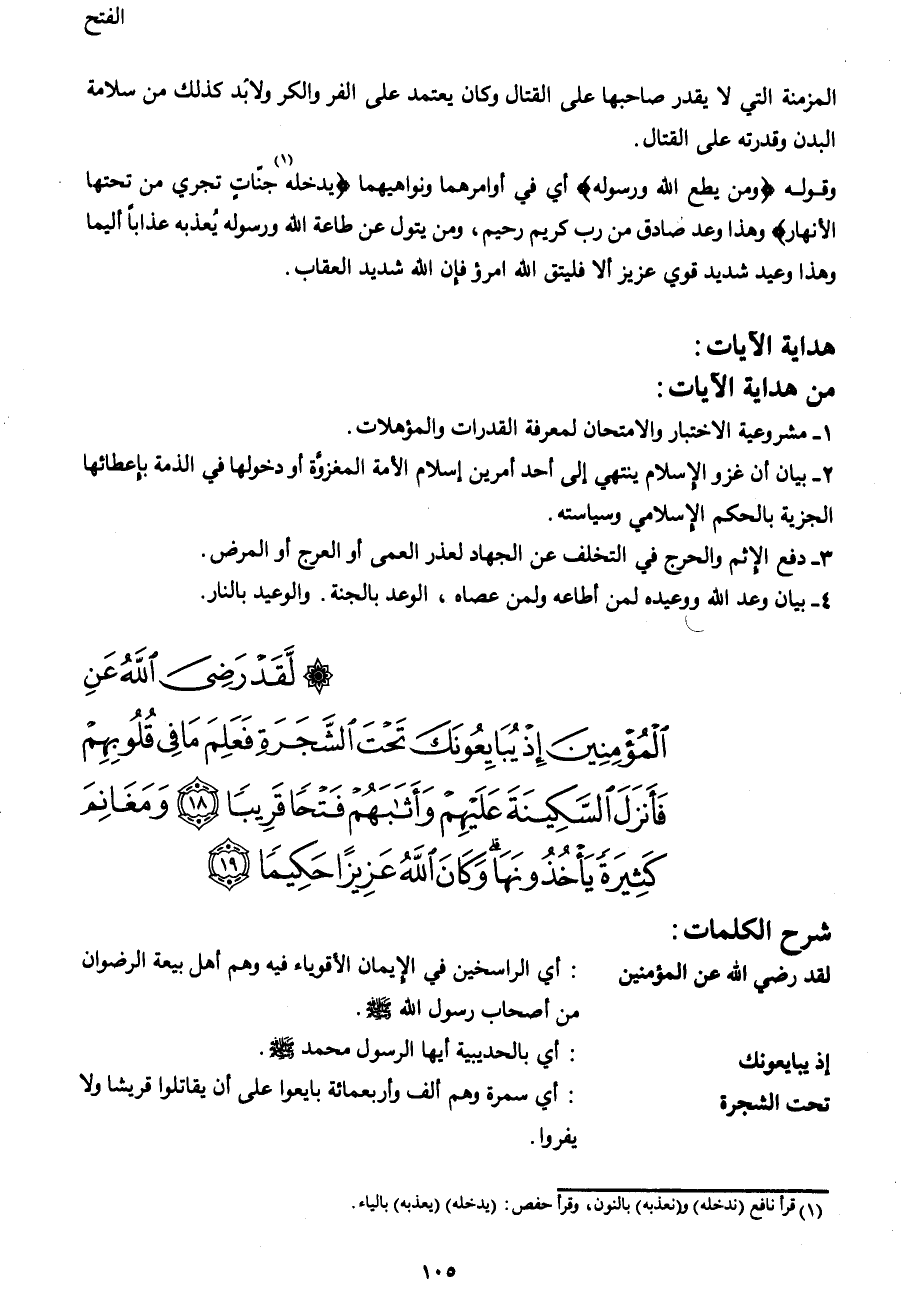 الفتح
المزمنة التي لا يقدر صاحبها على القتال وكان يعتمد على الفر والكر ولابُد كذلك من سلامة
البدن وقدرته على القتال.
وقوله ﴿ومن يطع الله ورسوله﴾ أي في أوامرهما ونواهيهما ﴿يدخله(١) جنّاتٍ تجري من تحتها
الأنهار﴾ وهذا وعد صادق من رب كريم رحيم، ومن يتول عن طاعة الله ورسوله يُعذبه عذاباً أليما
وهذا وعيد شديد قوي عزيز ألا فليتق الله امرؤ فإن الله شديد العقاب.
هداية الآيات:
من هداية الآيات:
١ـ مشروعية الاختبار والامتحان لمعرفة القدرات والمؤهلات.
٢ـ بيان أن غزو الإسلام ينتهي إلى أحد أمرين إسلام الأمة المغزوَّة أو دخولها في الذمة بإعطائها
الجزية بالحكم الإسلامي وسياسته.
٣ـ دفع الإثم والحرج في التخلف عن الجهاد لعذر العمى أو العرج أو المرض.
٤ـ بيان وعد الله ووعيده لمن أطاعه ولمن عصاه ، الوعد بالجنة. والوعيد بالنار.
۞ لَّقَدْ رَضِيَ ٱللَّهُ عَنِ
ٱلْمُؤْمِنِينَ إِذْ يُبَايِعُونَكَ تَحْتَ ٱلشَّجَرَةِ فَعَلِمَ مَا فِي قُلُوبِهِمْ
فَأَنزَلَ ٱلسَّكِينَةَ عَلَيْهِمْ وَأَثَٰبَهُمْ فَتْحًا قَرِيبًا ۝١٨ وَمَغَانِمَ
كَثِيرَةً يَأْخُذُونَهَا ۗ وَكَانَ ٱللَّهُ عَزِيزًا حَكِيمًا ۝١٩
شرح الكلمات:
لقد رضي الله عن المؤمنين : أي الراسخين في الإيمان الأقوياء فيه وهم أهل بيعة الرضوان
من أصحاب رسول الله ﷺ.
إذ يبايعونك : أي بالحديبية أيها الرسول محمد ﷺ.
تحت الشجرة : أي سمرة وهم ألف وأربعمائة بايعوا على أن يقاتلوا قريشا ولا
يفروا.
(١) قرأ نافع (ندخله) و(نعذبه) بالنون، وقرأ حفص: (يدخله) (يعذبه) بالياء.
١٠٥